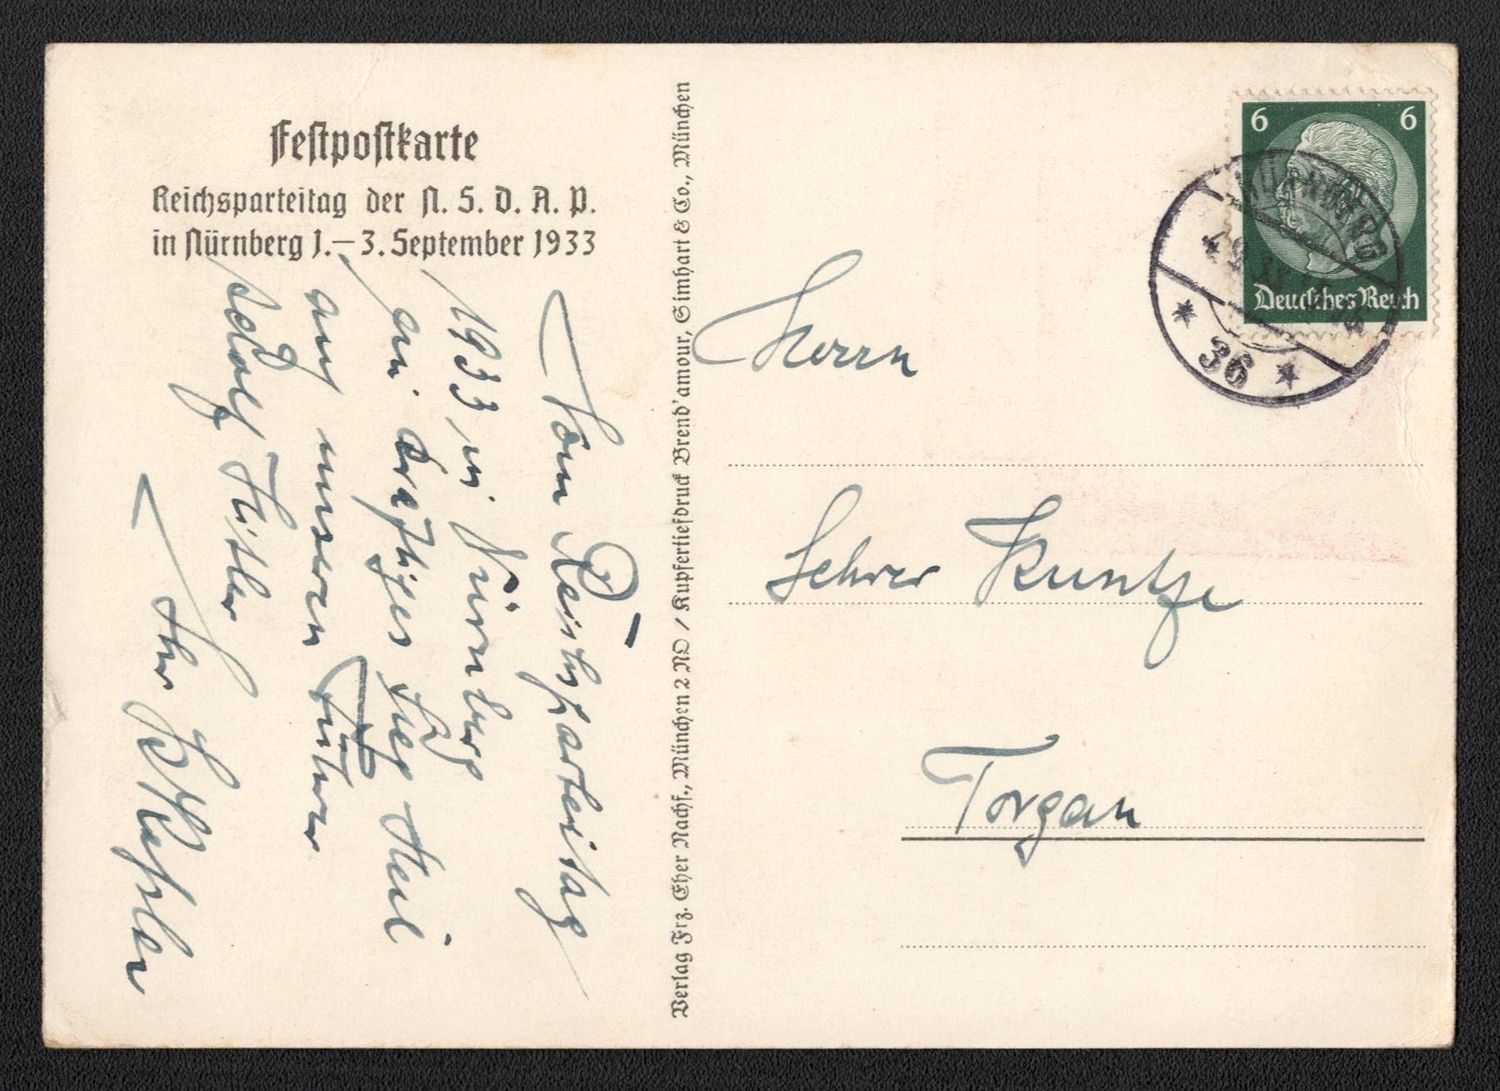 Festpostkarte
Reichsparteitag der N. S. D. A. P.
in Nürnberg 1.–3. September 1933
Vom Reichsparteitag
1933 in Nürnberg
ein kräftiges Sieg Heil
auf unseren Führer
Adolf Hitler
Ihr
Verlag Frz. Eher Nachf., München 2 NO / Kupfertiefdruck Brend'amour, Simhart & Co., München
6 6
Deutsches Reich
NÜRNBERG
* 36 *
Herrn
Lehrer Kuntze
Torgau